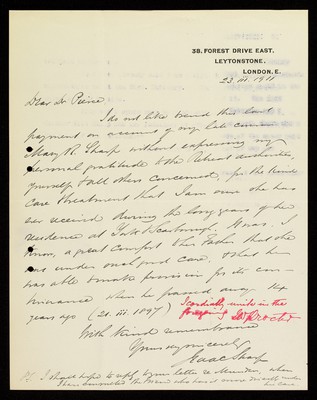 38. FOREST DRIVE EAST.
LEYTONSTONE.
LONDON. E.
23. iii. 1911
Dear Dr Pierce
I do not like to send this last
payment on account of my late cousin
Mary R. Sharp without expressing my
personal gratitude to the Retreat authorities
yourself & all others concerned, for the kind
care & treatment that I am sure she has
ever received during the long years of her
residence at York & Scarborough. It was, I
know, a great comfort to her Father that she
was under such good care, & that he
was able to make provision for its con-
tinuance when he passed away
years ago (21. iii. 1897)
I cordially unite in the
foregoing Proctor
With kind remembrance
Yours very sincerely
Isaac Sharp
P.S. I should hope to reply to your letter re